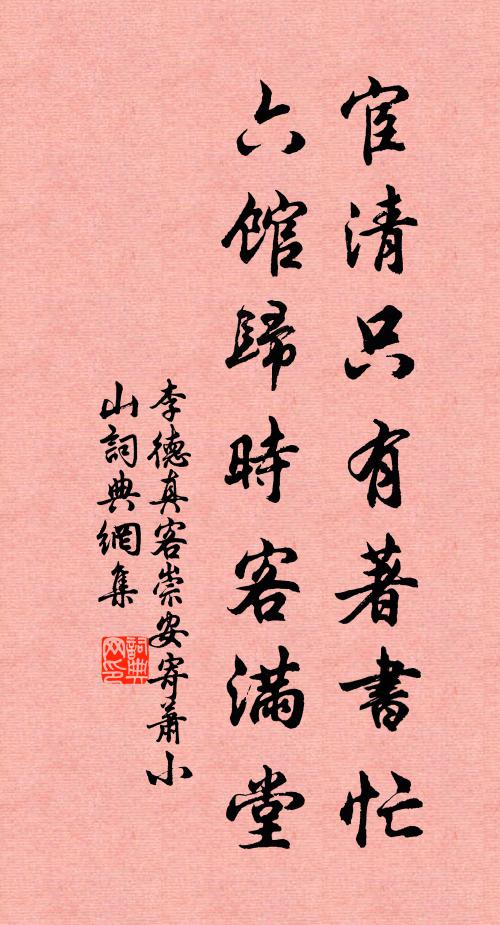 宦清只有著書忙
六館歸時客滿堂
李德真客崇安寄蕭小
山詞典網集
詞典網印